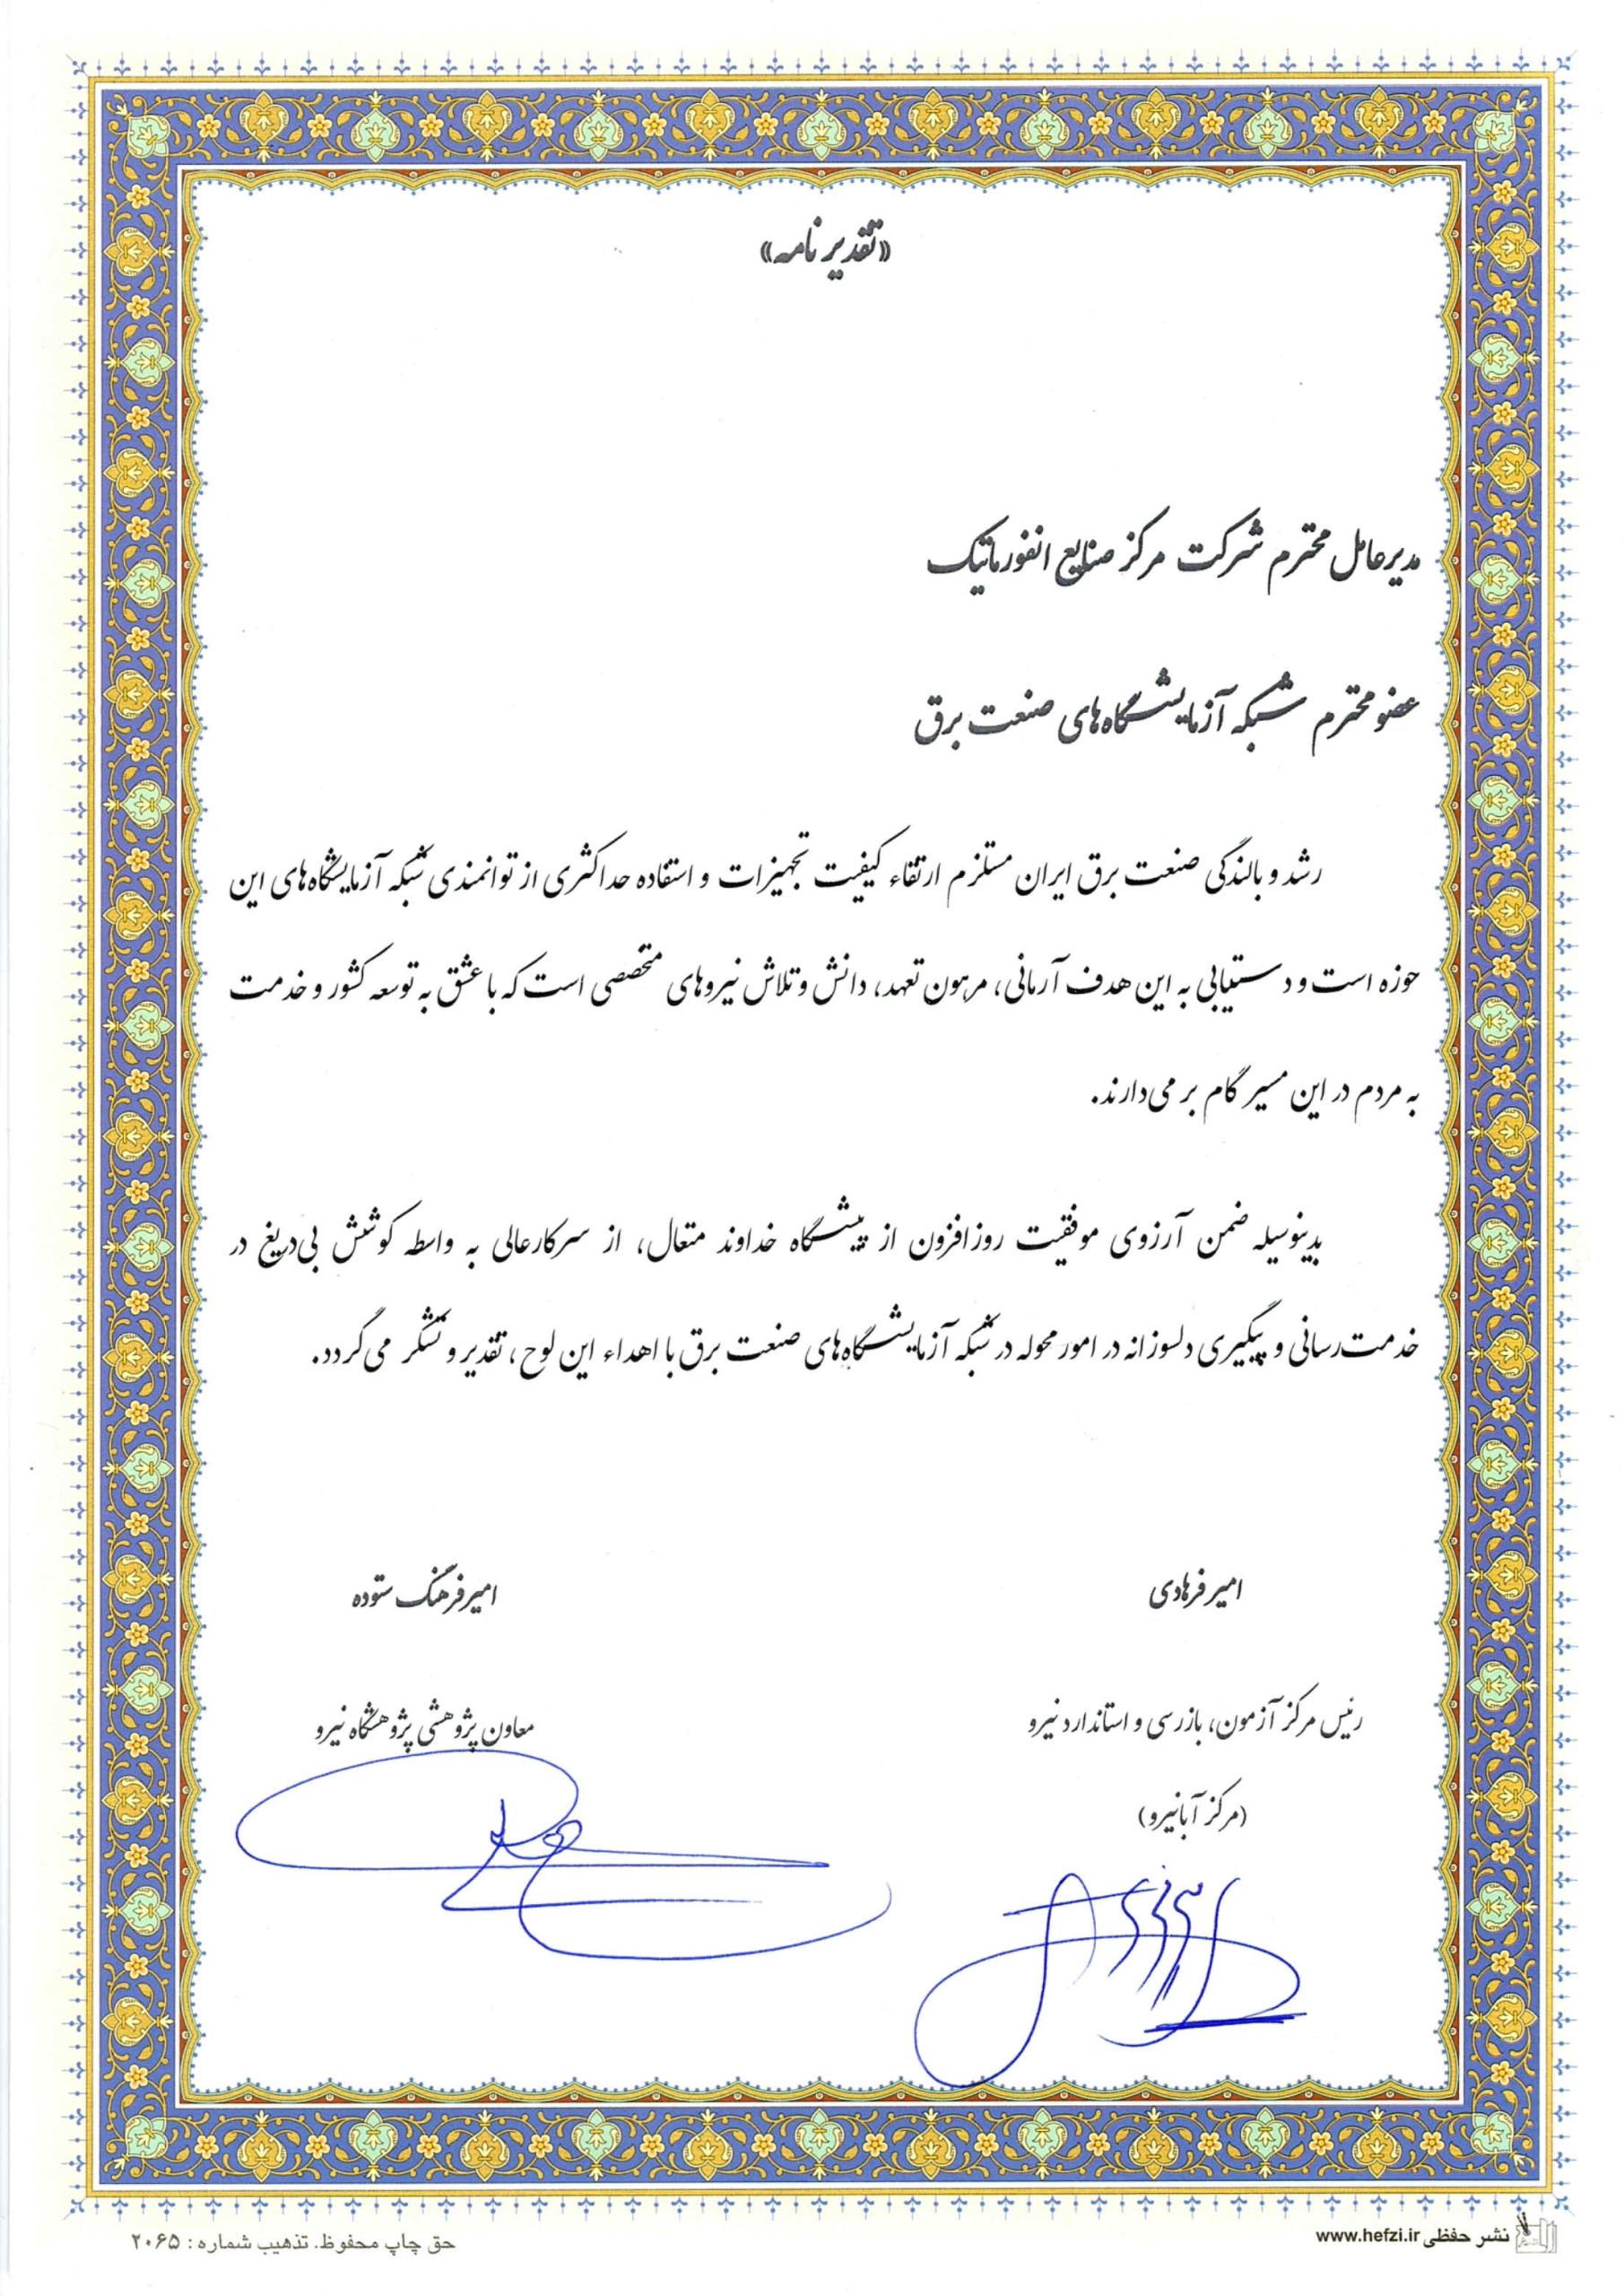 «تقدیر نامه»
مدیرعامل محترم شرکت مرکز صنایع انفورماتیک
عضو محترم شبکه آزمایشگاه‌های صنعت برق
رشد و بالندگی صنعت برق ایران مستلزم ارتقاء کیفیت تجهیزات و استفاده حداکثری از توانمندی شبکه آزمایشگاه‌های این
حوزه است و دستیابی به این هدف آرمانی، مرهون تعهد، دانش و تلاش نیروهای متخصصی است که با عشق به توسعه کشور و خدمت
به مردم در این مسیر گام بر می‌دارند.
بدینوسیله ضمن آرزوی موفقیت روزافزون از پیشگاه خداوند متعال، از سرکارعالی به واسطه کوشش بی‌دریغ در
خدمت‌رسانی و پیگیری دلسوزانه در امور محوله در شبکه آزمایشگاه‌های صنعت برق با اهداء این لوح، تقدیر و تشکر می‌گردد.
امیر فرهادی
رئیس مرکز آزمون، بازرسی و استاندارد نیرو
(مرکز آبانیرو)
امیرفرهنگ ستوده
معاون پژوهشی پژوهشگاه نیرو
نشر حفظی www.hefzi.ir
حق چاپ محفوظ. تذهیب شماره : ۲۰۶۵